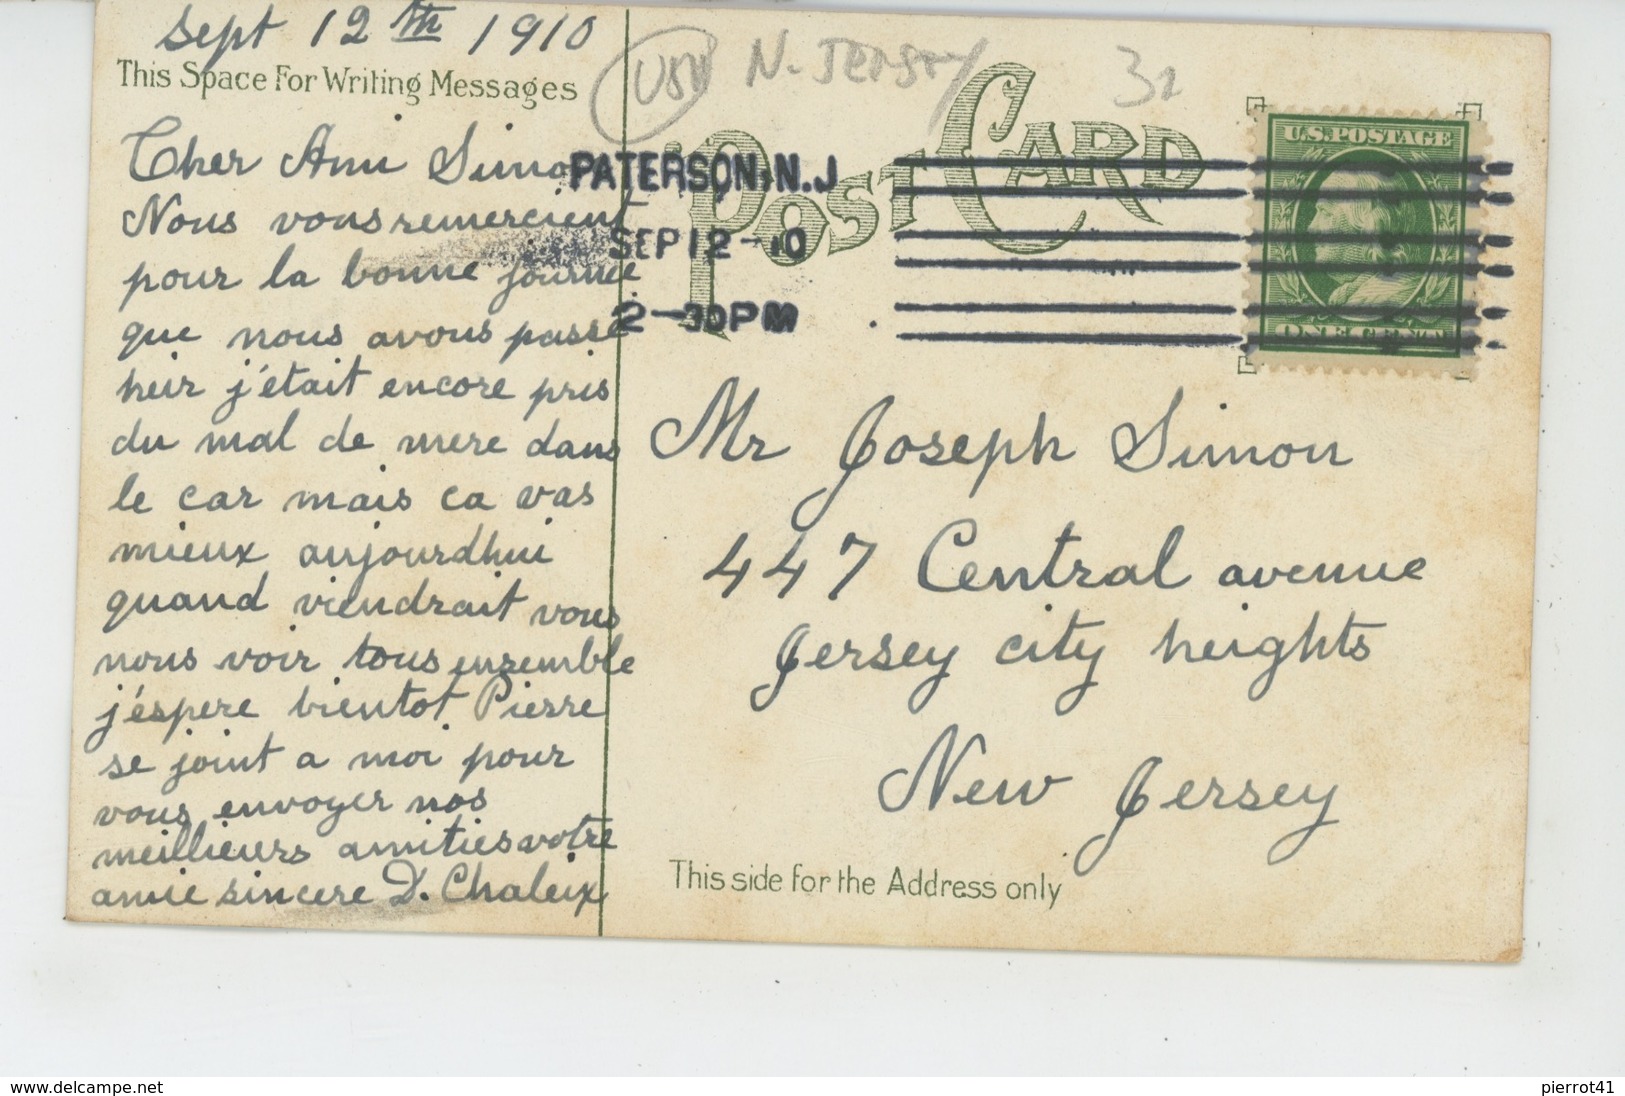 Sept 12th 1910
This Space For Writing Messages
Cher Ami Simon
Nous vous remercient
pour la bonne journée
que nous avous passé
heir j'était encore pris
du mal de mere dans
le car mais ca vas
mieux aujourdhui
quand viendrait vous
nous voir tous ensemble
j'éspere bientot Pierre
se joint a moi pour
vous envoyer nos
meillieurs amities votre
amie sincere D. Chaleix
USA N. JERSEY 31
POST CARD
PATERSON, N.J
SEP 12 - 10
2-30PM
U.S. POSTAGE
ONE CENT
Mr Joseph Simon
447 Central avenue
Jersey city heights
New Jersey
This side for the Address only
www.delcampe.net
pierrot41